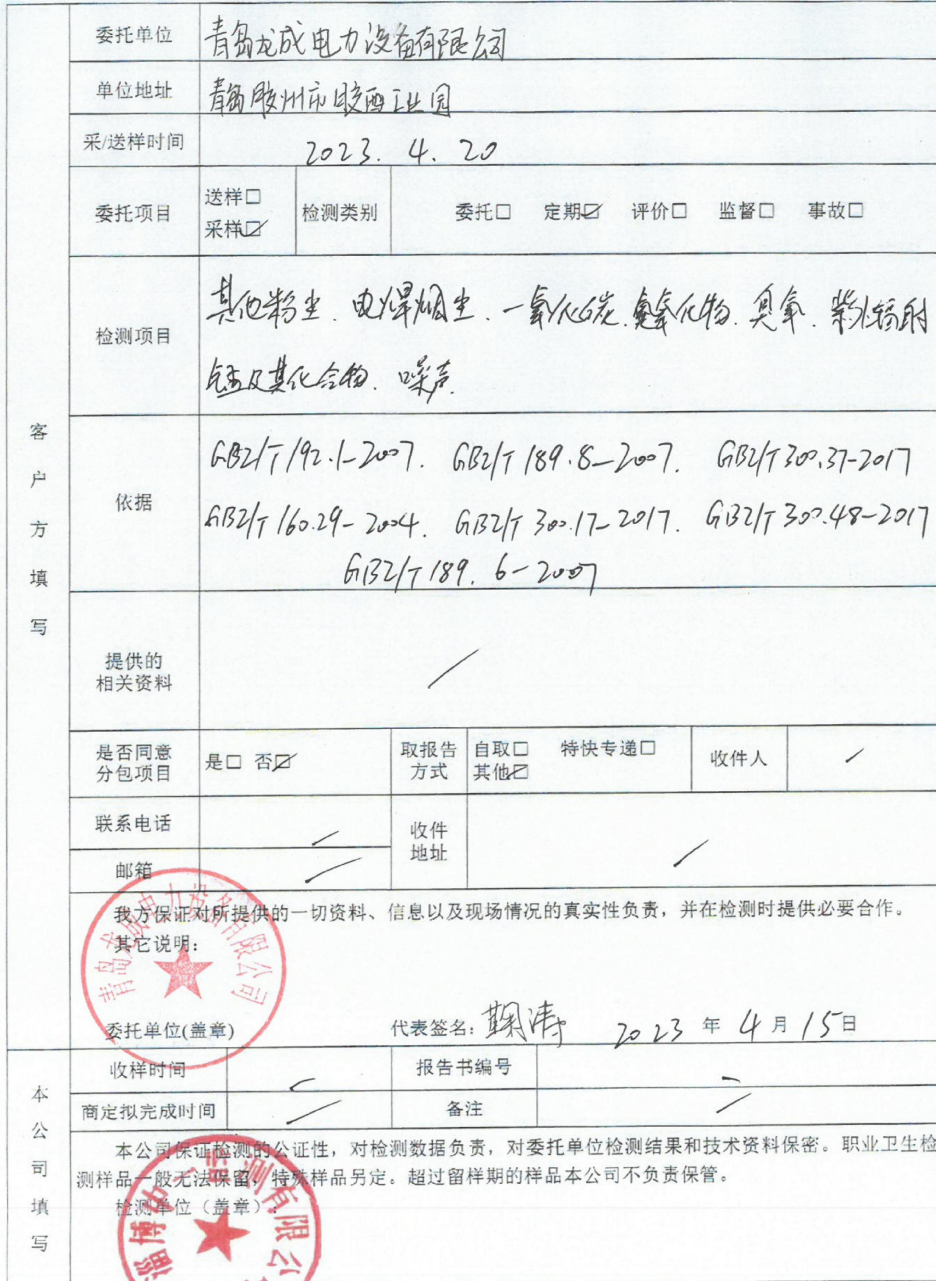 委托单位 青岛龙成电力设备有限公司
单位地址 青岛胶州市胶西工业园
采/送样时间 2023. 4. 20
委托项目 送样□ 采样☑ 检测类别 委托□ 定期☑ 评价□ 监督□ 事故□
检测项目 其他粉尘、电焊烟尘、一氧化碳、氮氧化物、臭氧、紫外辐射
锰及其化合物、噪声
客户方填写
依据 GBZ/T 192.1-2007. GBZ/T 189.8-2007. GBZ/T 300.37-2017
GBZ/T 160.29-2004. GBZ/T 300.17-2017. GBZ/T 300.48-2017
GBZ/T 189.6-2007
提供的
相关资料 /
是否同意
分包项目 是□ 否☑ 取报告
方式 自取□ 特快专递□
其他☑ 收件人 /
联系电话 / 收件
地址 /
邮箱 /
我方保证对所提供的一切资料、信息以及现场情况的真实性负责，并在检测时提供必要合作。
其它说明：
青岛龙成电力设备有限公司
委托单位(盖章) 代表签名: 鞠涛 2023 年 4 月 15 日
收样时间 / 报告书编号 /
商定拟完成时间 / 备注 /
本公司填写
本公司保证检测的公证性，对检测数据负责，对委托单位检测结果和技术资料保密。职业卫生检
测样品一般无法保留，特殊样品另定。超过留样期的样品本公司不负责保管。
检测单位（盖章）:
淄博 测有限公